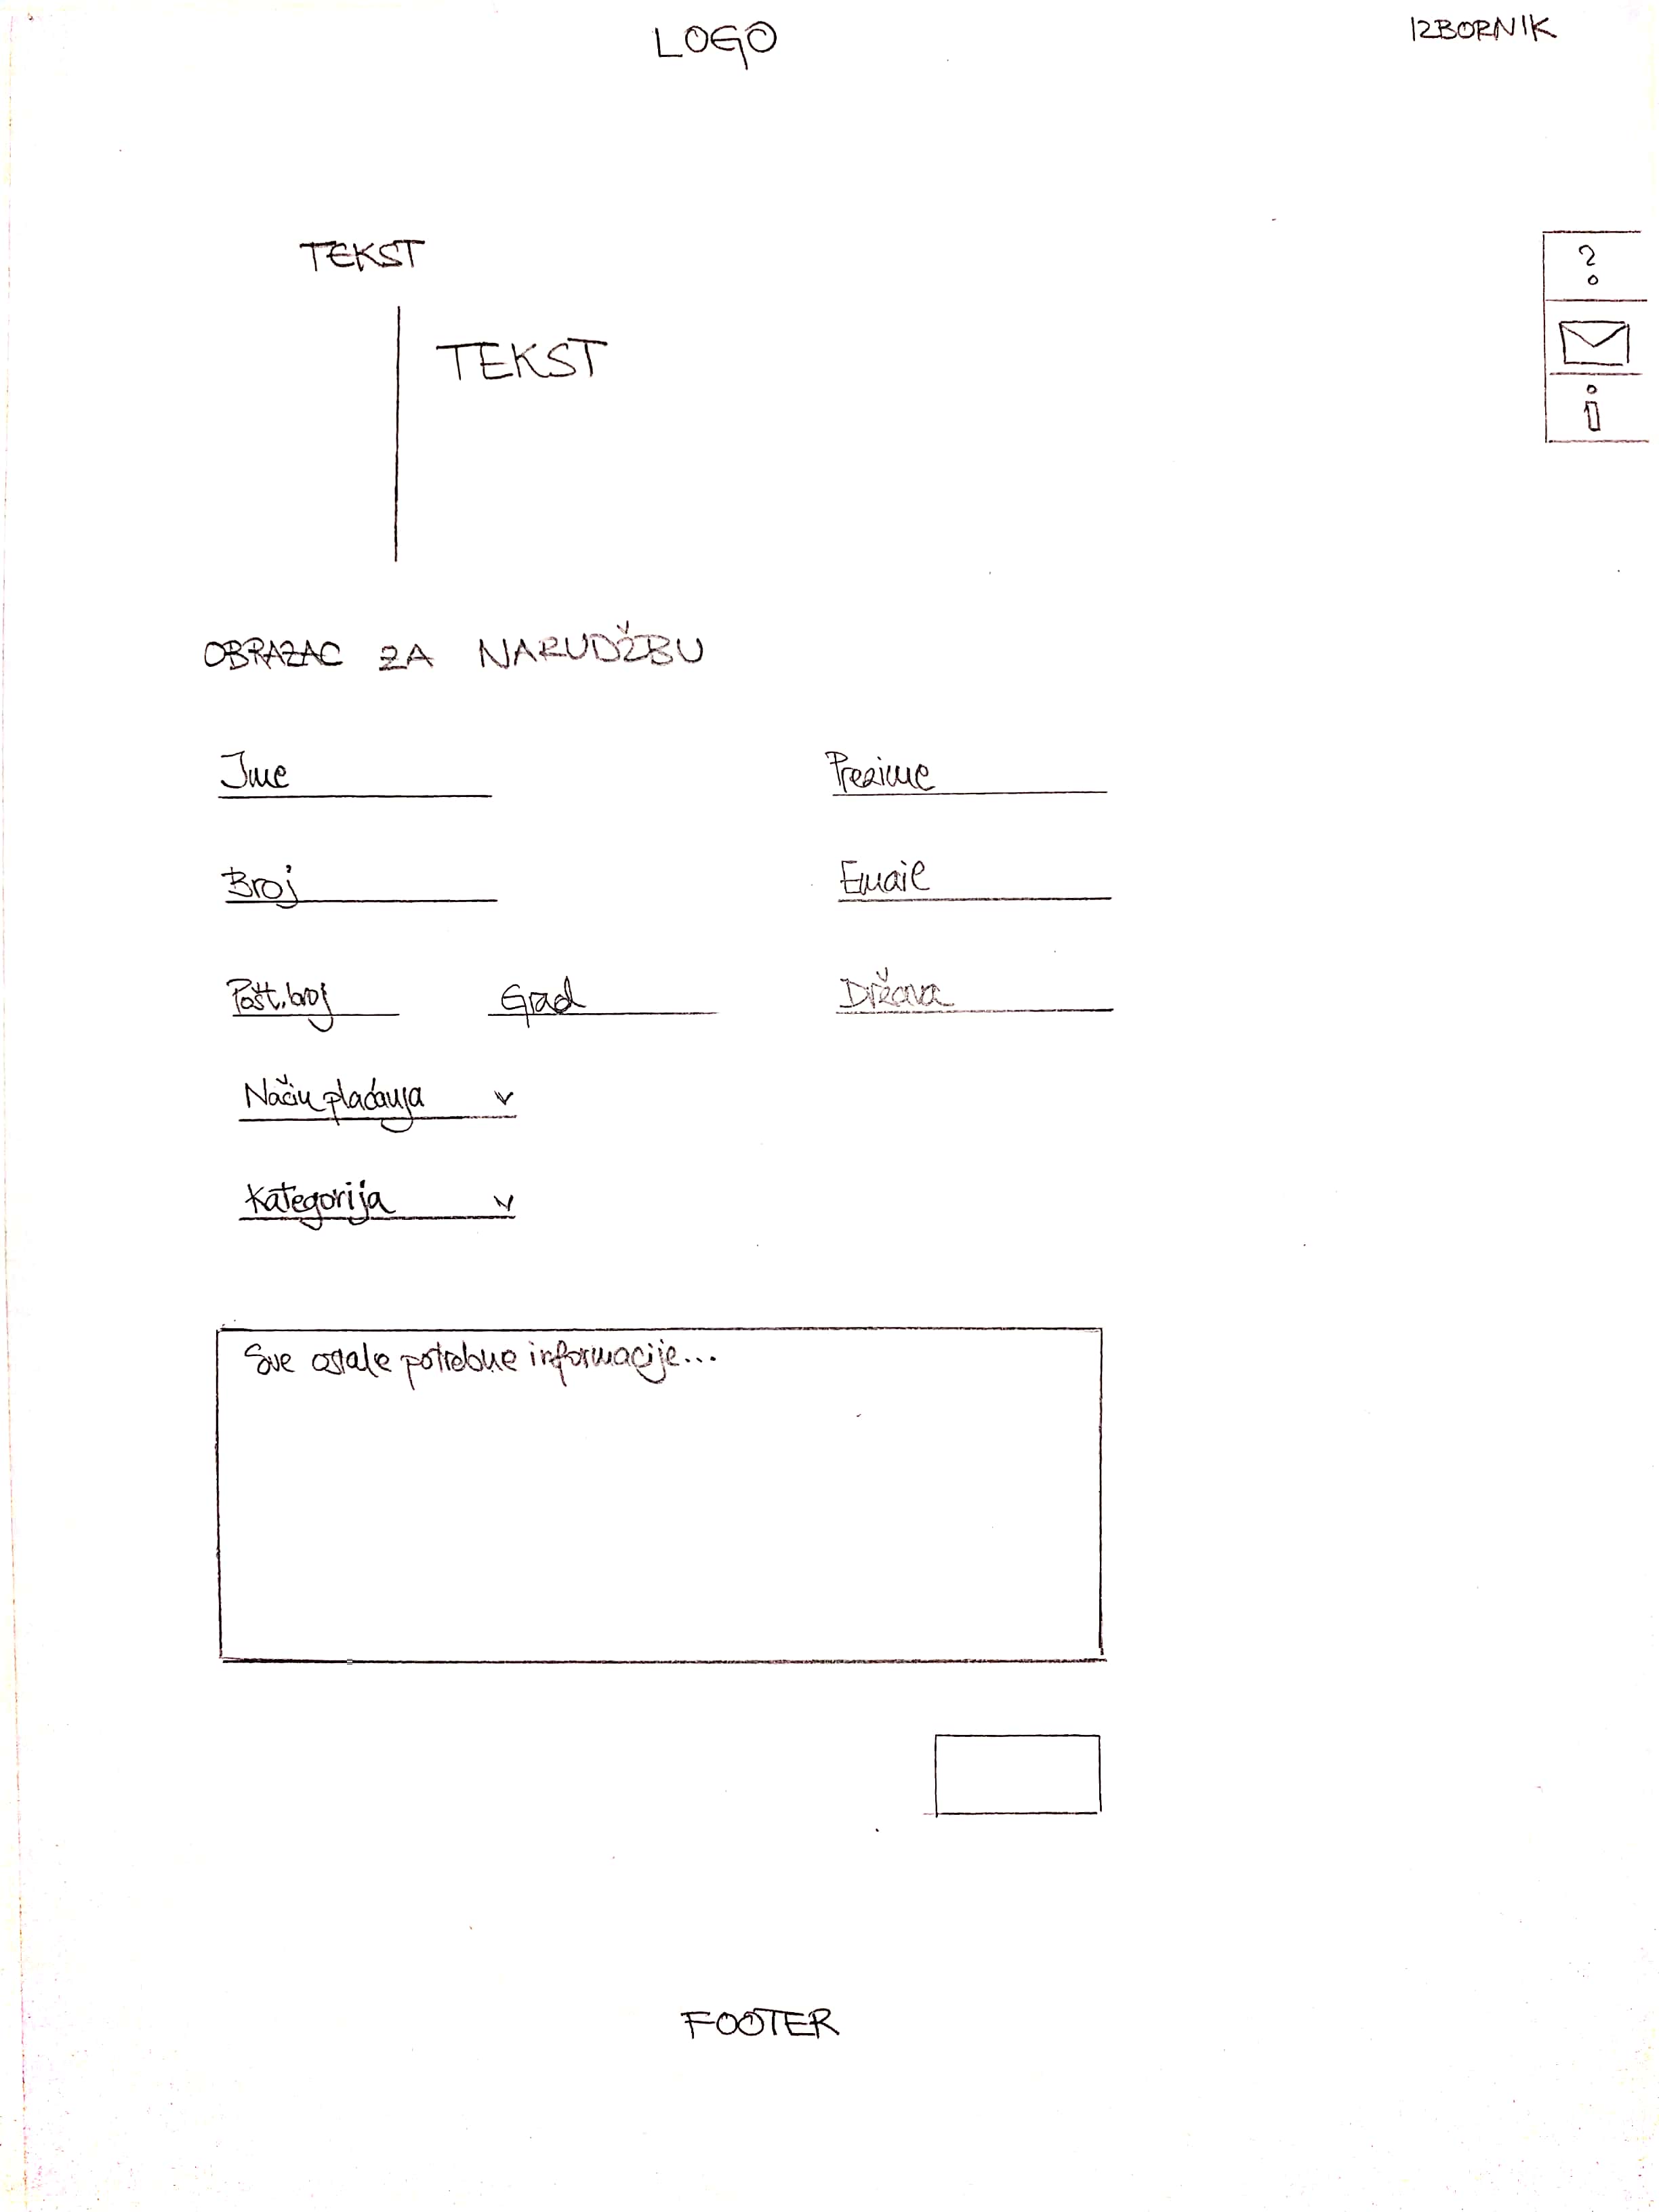 LOGO
IZBORNIK
TEKST
TEKST
?
i
OBRAZAC ZA NARUDŽBU
Ime
Prezime
Broj
Email
Pošt.broj
Grad
Država
Način plaćanja
Kategorija
Sve ostale potrebne informacije...
FOOTER